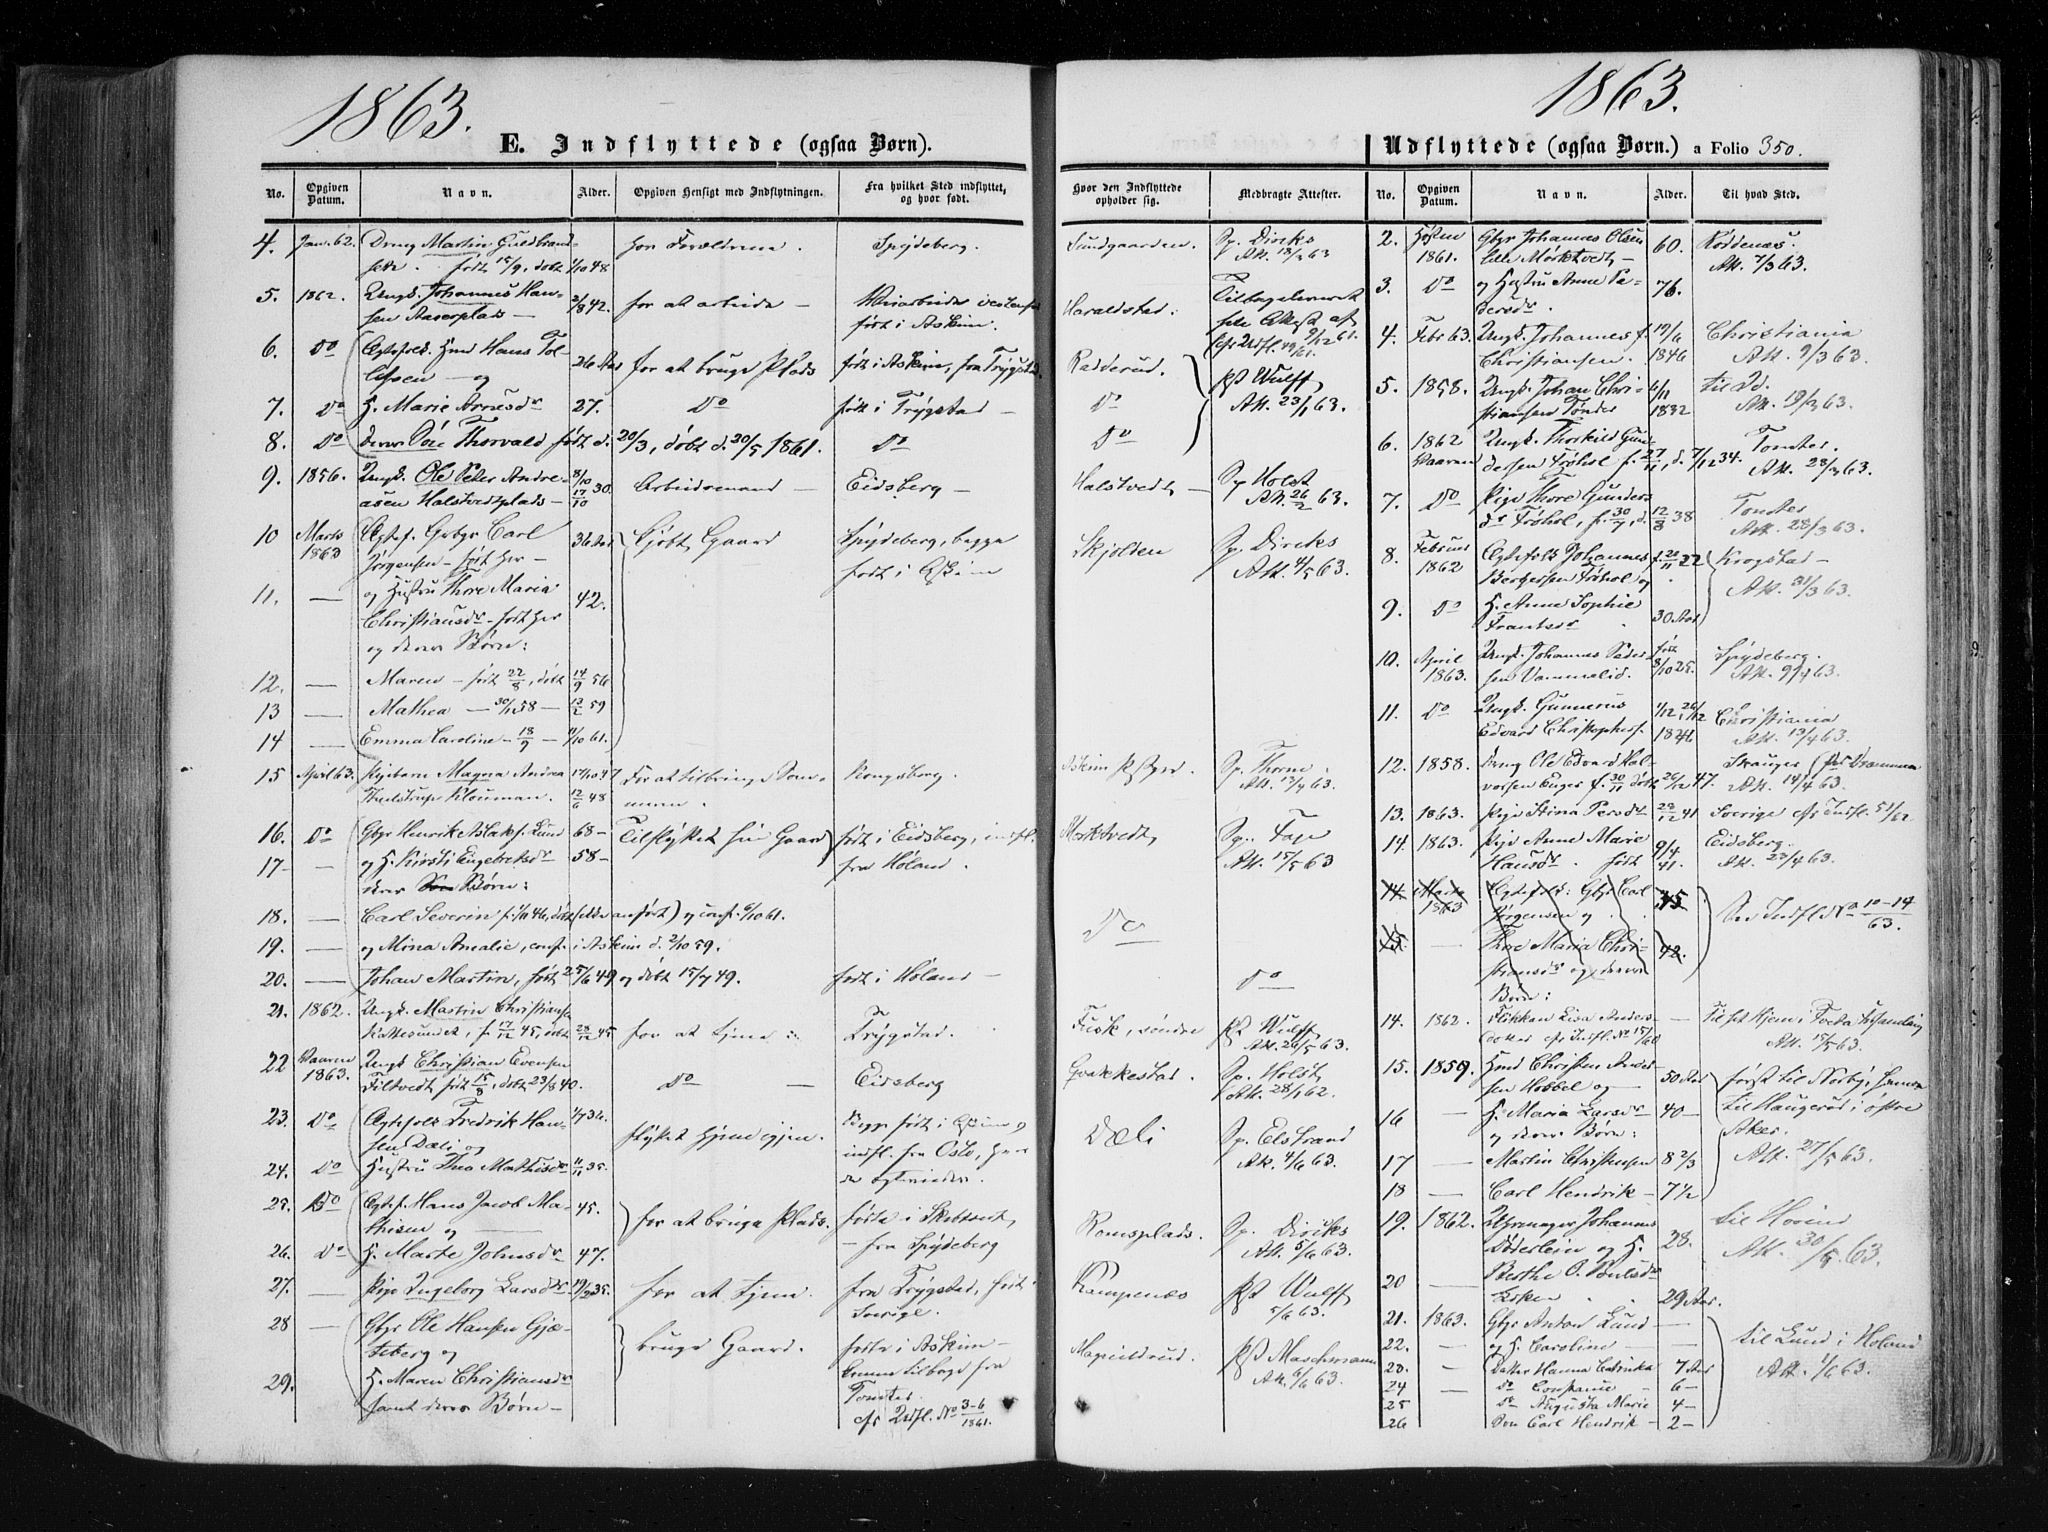 1863.
E. Indflyttede (ogsaa Børn).
No. Opgiven Datum. Navn. Alder. Opgiven Hensigt med Indflytningen. Fra hvilket Sted indflyttet, og hvor født.
4. Jan. 62. Dreng Martin Guldbrand- hos Forældrene. Spydeberg.
sen. født 15/9, døbt 1/10 48
5. 1862. Ungk. Johannes Han- 2/8 42. for at arbeide –
sen Aaserplads – født i Askim.
6. Do Ægtefolk. Hans Tol- 26 Aar for at bruge Plads født i Askim, fra Trygstad.
lefsen – og
7. Do H. Marie Arnesdr 27. Do født i Trygstad –
8. Do deres Thorvald født d. 20/3, døbt d. 20/5 1861. Do
9. 1856. Ungk. Ole Peter Andre- 8/10 17/10 30. Arbeidsmand – Eidsberg –
asen Halstvedtplads –
10 Marts 1863 Ægtef. Gbr Carl 36 Aar Kjøbt Gaard Spydeberg, begge
Jørgensen – født her – født i Askim
11. – og Hustru Thore Maria 42.
Christiansdr – født her
og deres Børn:
12. – Maren – født 22/8, døbt 14/9 56
13 – Mathea – 30/11 58 – 13/2 59
14 – Emma Caroline – 18/9 – 11/10 61.
15 April 63. Magna Andrea 17/10 47 For at tilbringe Som- Kongsberg.
Klouman. 12/6 48 meren.
16. Do Gbr Henrik Aslaks. Lund 68 – Tilflyttet sin Gaard født i Eidsberg, indfl.
17 – og H. Kirsti Engebretsdr 58 – fra Høland.
deres Børn:
18. – Carl Severin f. 1/10 46, døbt (ikke anført) og conf. 6/10 61.
19. – og Mina Amalie, conf. i Askim d. 2/10 59.
20. – Johan Martin, født 25/6 49 og døbt 15/7 49. født i Høland –
21. 1862. Ungk. Martin Christians.
f. 17/12 45, døbt 28/12 45 for at tjene Trygstad.
22 Vaaren 1863. Ungk Christian Evensen
født 15/8, døbt 23/8 40. Do – Eidsberg
23. Do Ægtefolk Fredrik Han- 1/7 36. flyttet hjem igjen. Begge født i Askim og
sen Dæli og indfl. fra Oslo,
24. Do Hustru Thea Mathisdr 11/11 35.
25. Do Ægtef. Hans Jacob Ma- 45. for at bruge Plads. fødte i
thisen og – fra Spydeberg
26. Do H. Marte Johnsdr 47.
27. – Pige Ingeborg Larsdr 19/2 35. for at tjene. fra Trygstad, født i
Sverige.
28 – Gbr Ole Hansen Gjæ- bruge Gaard. fødte i Askim –
teberg og komne tilbage fra
29. H. Maren Christiansdr Tomter
samt deres Børn – cfr Udfl. No 3–6 1861.
1863.
Udflyttede (ogsaa Børn.) a Folio 350.
Hvor den Indflyttede opholder sig. Medbragte Attester. No. Opgiven Datum. Navn. Alder. Til hvad Sted.
Sundgaarden. Sp. Dircks
Att. 13/2 63
Haraldstad. Tilbageleveret
cfr Udfl. 49/61.
Radderud. Wulff
Do Att. 23/1 63.
Do
Halstvedt – Sp Holst
Att. 26/2 63.
Skjolden Sp. Dircks
Att. 4/5 63.
Askim Sp. Thorne
Att. 13/4 63.
Morktvedt Sp.
Att. 15/5 63
Do
Do
Fusk, søndre Wulff
Att. 26/5 63.
Grakkestad. Sp. Holst
Att. 28/1 62.
Dæli Sp. Elstrand
Att. 4/6 63.
Romsplads. Sp. Dircks
Att. 5/6 63.
Kampenæs Wulff
5/6 63.
Maschmann
Att. 6/6 63.
2. Høsten 1861. Gbr Johannes Olsen 60. Røddenæs.
lille Morktvedt – Att. 7/3 63.
3. Do og Hustru Anne Pe- 76.
dersdr.
4. Febr 63. Ungk. Johannes f. 19/6 Christiania
Christiansen. 1846 Att. 9/3 63.
5. 1858. Ungk. Johan Chri- 6/11
stiansen Tønder 1832 Att. 19/3 63.
6. 1862 Vaaren Ungk. Thorkild Gun- Tomter.
dersen Frøhol f. 27/11, d. 7/12 34. Att. 28/3 63.
7. Do Pige Thore Gunders- 12/8 38 Tomter
dr Frøhol, f. 30/7, d. Att. 28/3 63.
8. Februar 1862 Ægtefolk Johannes f. 20/11 22 Krogstad –
Bergersen Frøhol og Att. 31/3 63.
9. Do H. Anne Sophie
Frantsdr 30 Aar
10. April 1863. Ungk. Johannes Peder- født Spydeberg.
sen Vammelid. 8/10 25. Att. 9/4 63.
11. Do Ungk. Gunnerus 1/12, 26/12 Christiania
Edvard Christophers. 1846 Att. 13/4 63.
12. 1858. Dreng Ole Edvard Hal-
vorsen Enger f. 30/11 døbt 26/12 47. Att. 14/4 63.
13. 1863. Pige Stina Persdr 28/12 41 Sverige cfr Indfl. 51/62
14. 1863. Pige Anne Marie 9/4 Eidsberg.
Hansdr. født 41. Att. 23/4 63.
14 Marts 1863 Ægtefolk: Gbr Carl 35 Se Indfl. No 10–14/63.
Jørgensen og
15. – Thore Maria Chri- 42.
stiansdr og deres
Børn:
14. 1862. Pikkan Lisa Anders- – til sit Hjem i
dotter cfr Indfl. No 15/60 Att. 19/5 63.
15. 1859. Christen Ander- 50 Aar først til Norby,
sen Hobbel og – til Haugerud i østre
16 – H. Maria Larsdr 40 – Aker.
og deres Børn: Att. 27/5 63.
17 – Martin Christensen 8 2/3
18 – Carl Hendrik – 7 1/2
19. 1862. Johannes 28. til Hovind
Døderlein og H. Att. 30/5 63.
20 – Berthe O.
29 Aar.
21. 1863. Gbr Anton Lund – – til Lund i Høland
22. – og H. Caroline – – Att. 1/6 63.
23. – Datter Hanna Catrinka 7 Aar
24 – do Constance – 6 –
25 do Augusta Marie 4 –
26 Søn Carl Hendrik – 2 –